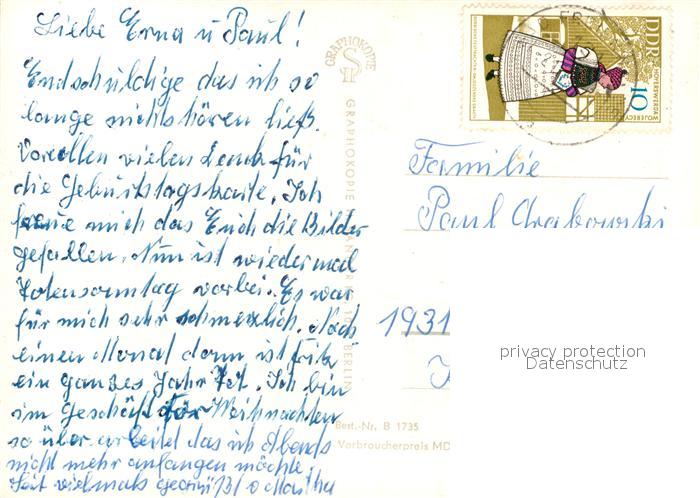 Liebe Erna u Paul!
Endschuldige das ich so
lange nichts hören ließ.
Vorallen vielen Dank für
die Geburtstagskarte. Ich
freue mich das Euch die Bilder
gefallen. Nun ist wiedermal
Totensonntag vorbei. Es war
für mich sehr schmerzlich. Noch
einen Monat dann ist Fritz
ein ganzes Jahr Tot. Ich bin
im Geschäft für Weihnachten
so über arbeitet das ich Abends
nicht mehr anfangen möchte
Seit vielmals gegrüßt Martha
GRAPHOKOPIE
GRAPHOKOPIE
BERLIN
Best.-Nr. B 1735
Verbraucherpreis MD
DDR
HOYERSWERDA
WOJERECY
10
Familie
Paul Grabowski
1931
privacy protection
Datenschutz